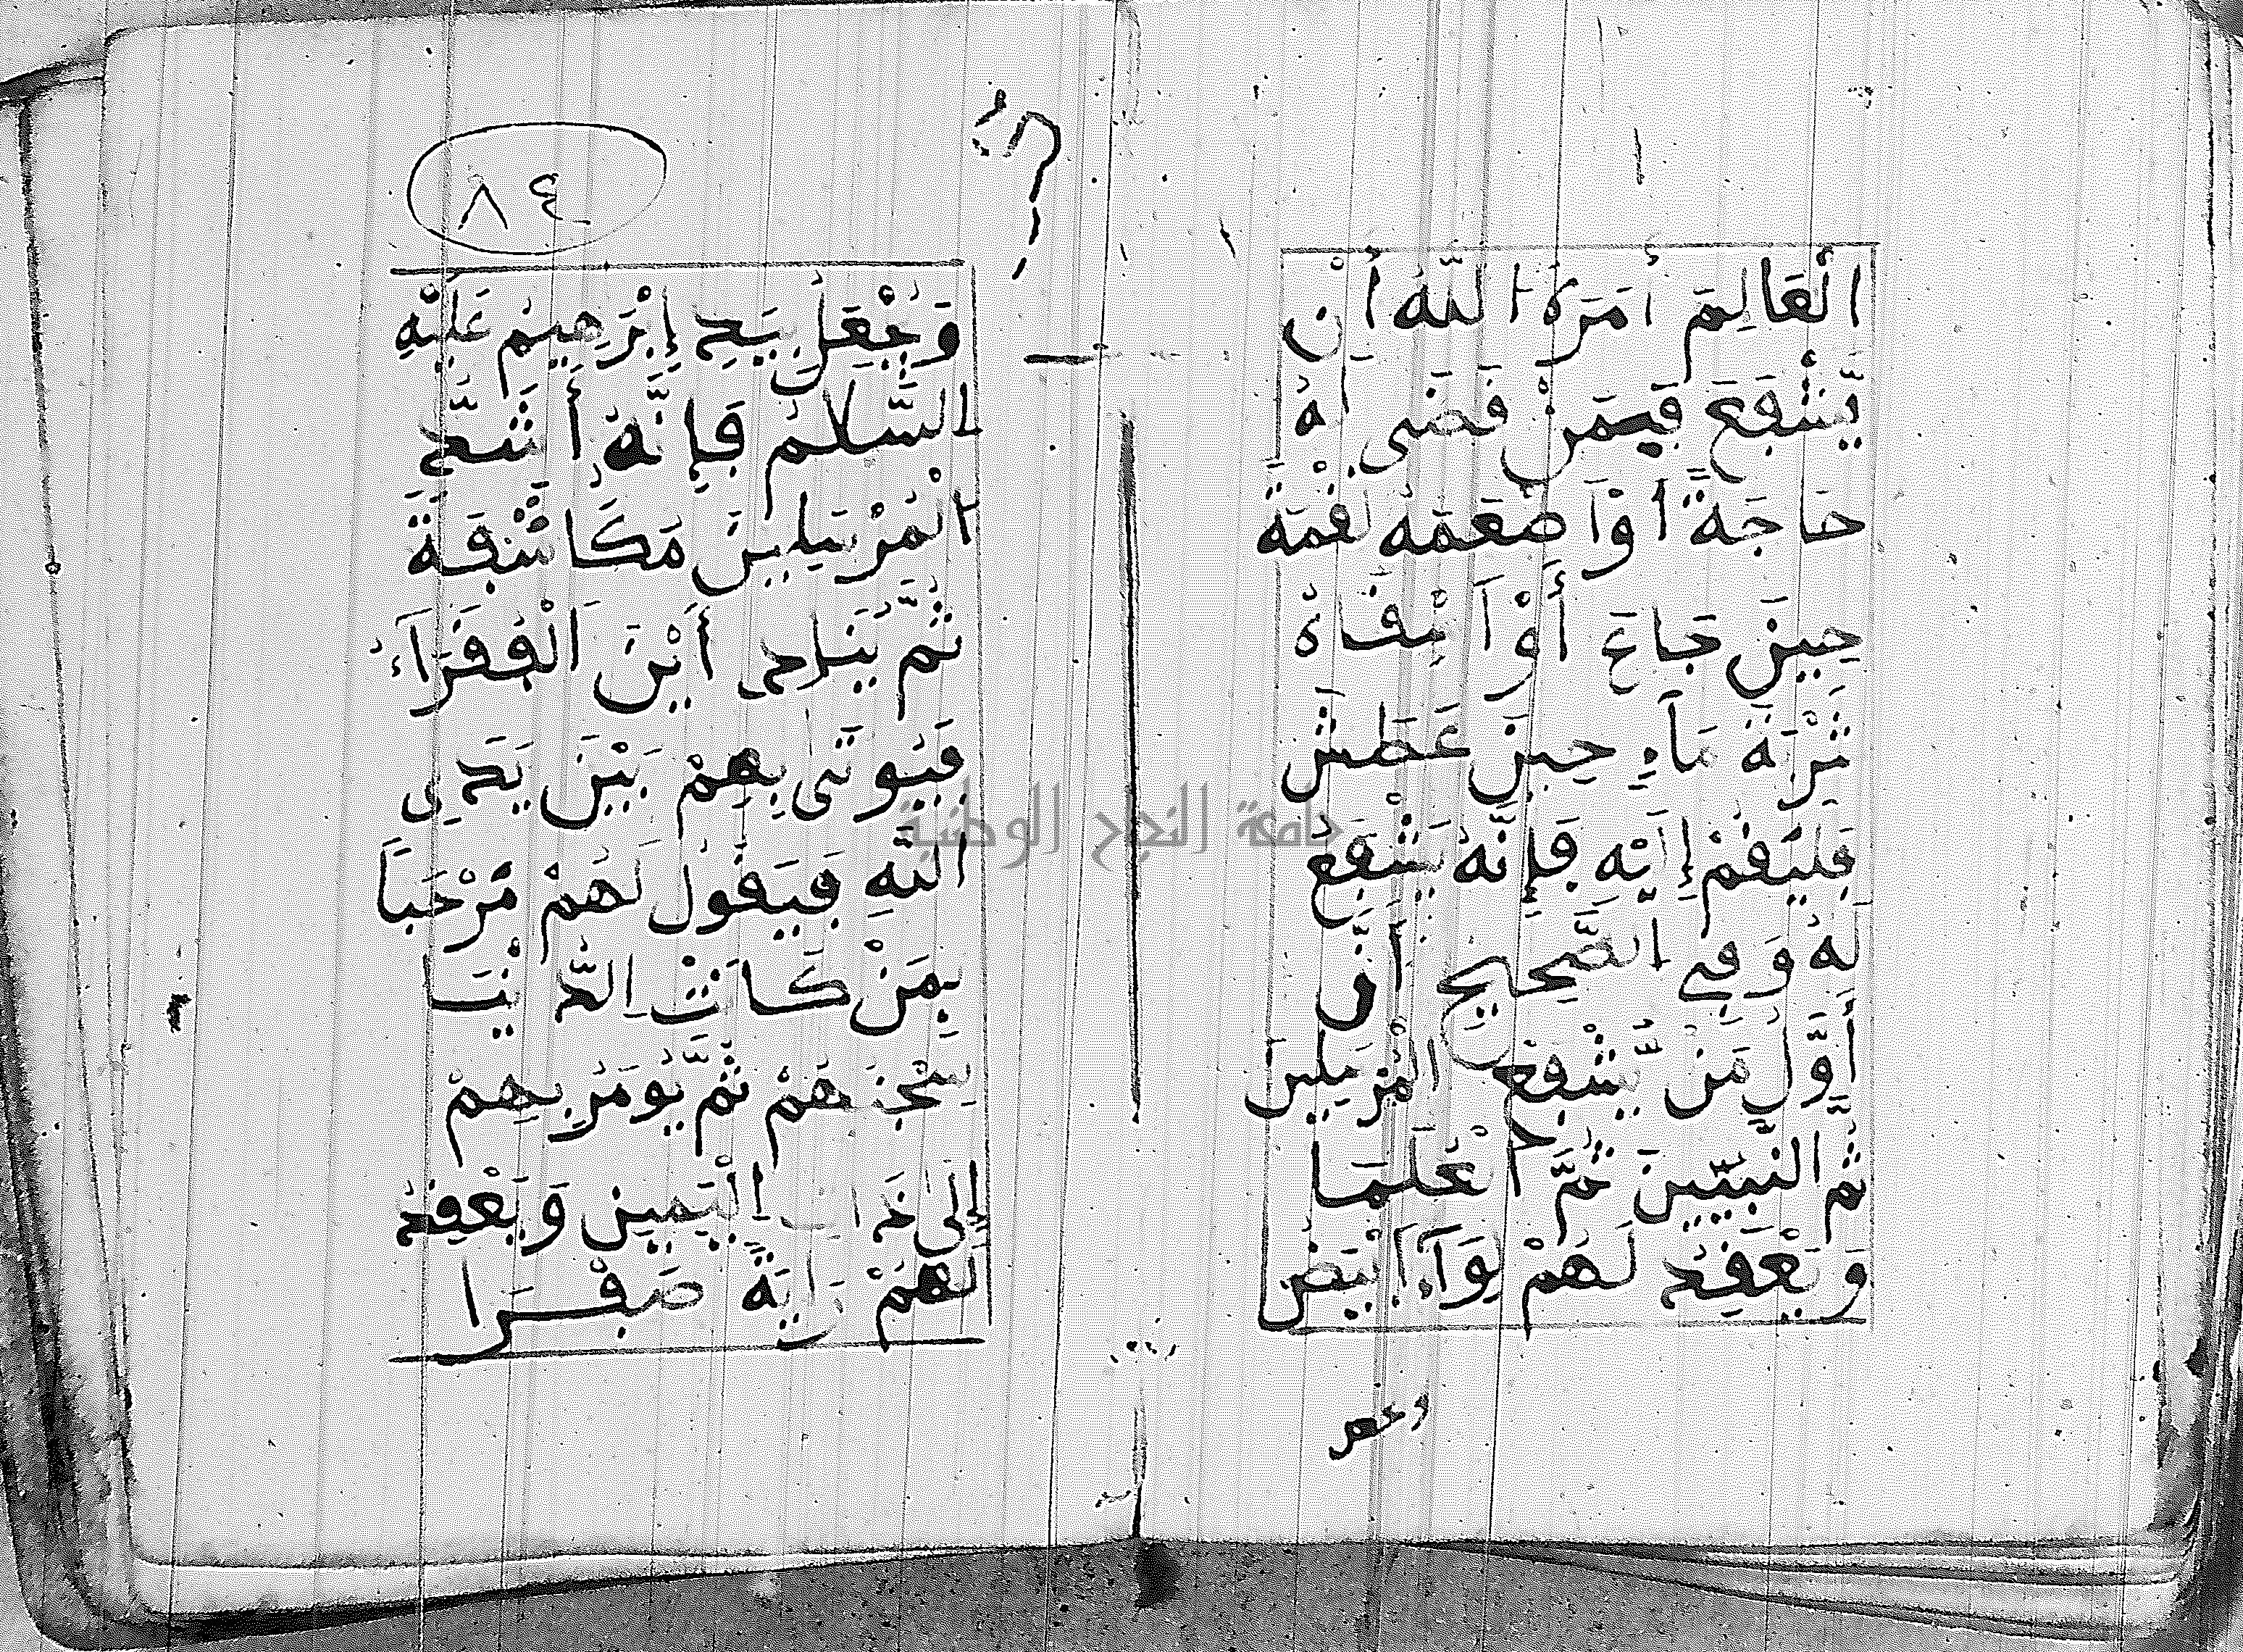 الْعَالِمَ أَمَرَهُ اللّهُ أَنْ
يَّشْفَعَ فِيمَنْ قَضَى لَهُ
حَاجَةً أَوْ اَطْعَمَهُ لُقْمَةً
حِينَ جَاعَ أَوْ اَسْقَاهُ
شَرْبَةَ مَآءٍ حِينَ عَطَشَ
فَلْيَقُمْ إِلَيْهِ فَإِنَّهُ يَشْفَعُ
لَهُ وَفِي الصَّحِيحِ أَنَّ
أَوَّلَ مَنْ يَّشْفَعُ الْمُرْسَلِينَ
ثُمَّ النَّبِيِّينَ ثُمَّ الْعُلَمَا
وَيُعْقَدُ لَهُمْ لِوَآءٌ اَبْيَضُ
وجعل
٨٤
وَيُجْعَلُ بِيَدِ إِبْرَهِيمَ عَلَيْهِ
السَّلَامُ فَإِنَّهُ أَشَدُّ
الْمُرْسَلِينَ مُكَاشَفَةً
ثُمَّ يُنَادَى أَيْنَ الْفُقَرَآءُ
فَيُوتَى بِهِمْ بَيْنَ يَدَيِ
اللّهِ فَيَقُولُ لَهُمْ مَرْحَبًا
بِمَنْ كَانَتِ الدُّنْيَا
سِجْنَهُمْ ثُمَّ يُومَرُ بِهِمْ
إِلَى ذَاتِ الْيَمِينِ وَيُعْقَدُ
لَهُمْ رَايَةً صَفْرَا
جامعة النجاح الوطنية